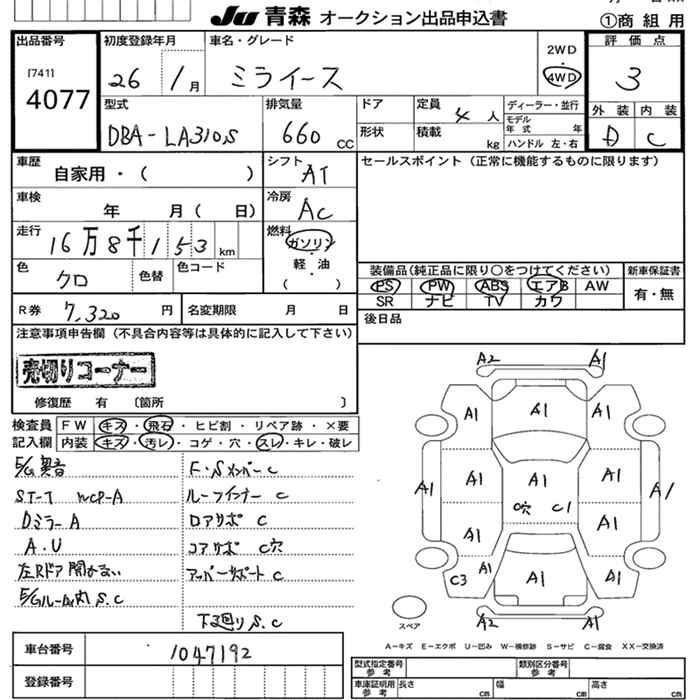 Ju 青森 オークション出品申込書
①商 組 用
出品番号
[741]
4077
初度登録年月
26 / 1月
車名・グレード
ミライース
2WD
4WD
評価点
3
外装 内装
D C
型式
DBA-LA310S
排気量
660 CC
ドア
形状
定員 4 人
積載 kg
ディーラー・並行
モデル年式 年
ハンドル 左・右
車歴
自家用・( )
シフト
AT
セールスポイント (正常に機能するものに限ります)
車検
年 月( 日)
冷房
AC
走行
16万8千153 km
燃料
ガソリン
軽・油
( )
色
クロ
色替
色コード
装備品(純正品に限り○をつけてください)
PS PW ABS エアB AW
SR ナビ TV カワ
新車保証書
有・無
R券
7,320 円
名変期限 月 日
後日品
注意事項申告欄 (不具合内容等は具体的に記入して下さい)
売切りコーナー
修復歴 有 〔箇所 〕
検査員記入欄
FW キズ・飛石・ヒビ割・リペア跡・×要
内装 キズ・汚レ・コゲ・穴・スレ・キレ・破レ
E/G異音
F・Sメンバー C
S.T-T WCP-A
ルーフインナー C
Dミラー A
ロアサポ C
A.U
コアサポ C穴
左Rドア 開かない
アッパーサポート C
E/Gルーム内 S.C
下廻り S.C
車台番号
1047192
登録番号
A2 A1
A1 A1 A1
A1 A1 A1 A1 A1
C穴 C1
A1 A1
C3 A1 A1 A1
A2 A1
スペア
A-キズ E-エクボ U-凹み W-補修跡 S-サビ C-腐食 XX-交換済
型式指定番号 参考
類別区分番号 参考
車庫証明用 参考
長さ cm 幅 cm 高さ cm